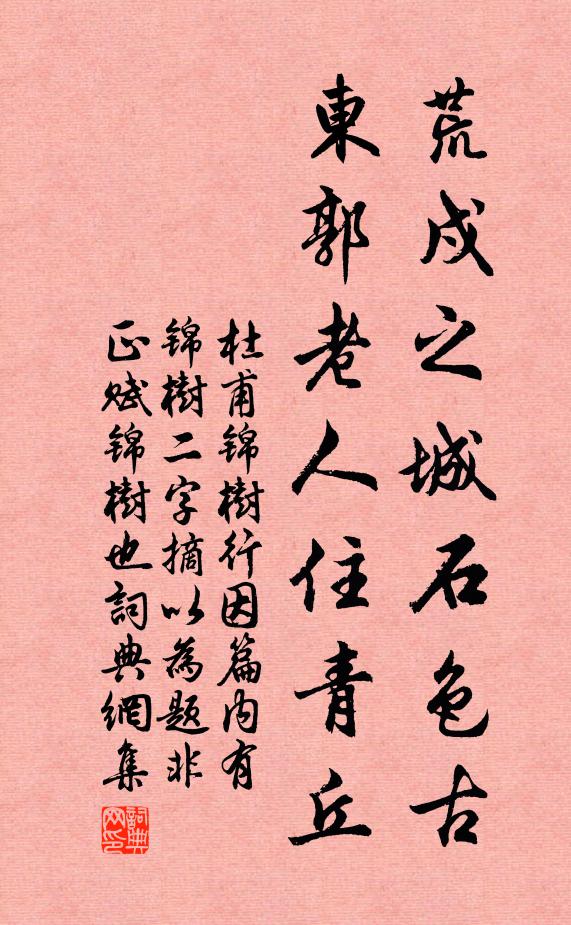 荒戍之城石色古
東郭老人住青丘
杜甫錦樹行因篇内有
錦樹二字摘以為題非
正賦錦樹也詞典網集
詞典网印